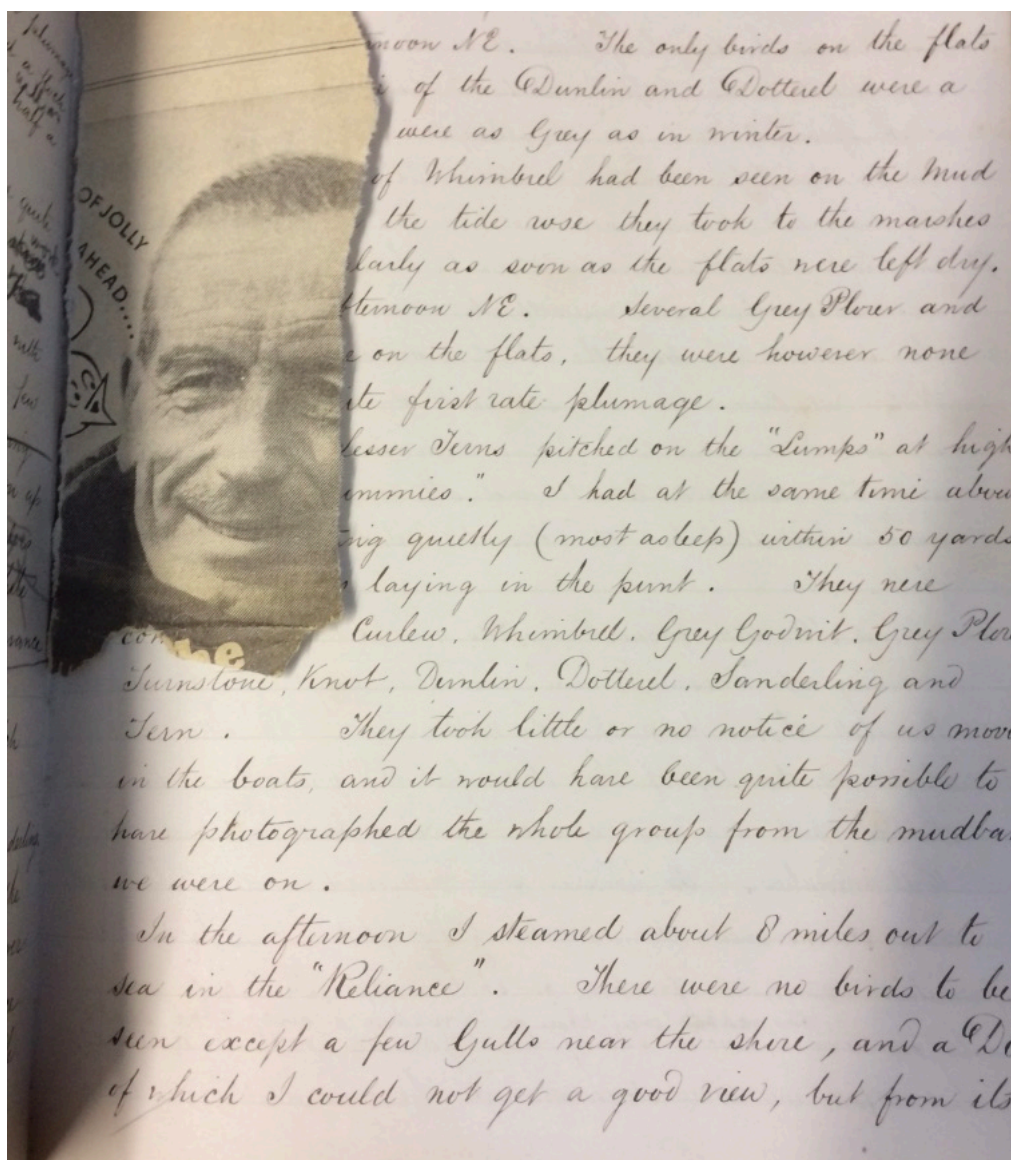 OF JOLLY
AHEAD....
he
noon NE. The only birds on the flats
of the Dunlin and Dotterel were a
were as Grey as in winter.
of Whimbrel had been seen on the Mud
the tide rose they took to the marshes
larly as soon as the flats were left dry.
fternoon NE. Several Grey Plover and
e on the flats, they were however none
ite first rate plumage.
Lesser Terns pitched on the "Lumps" at high
ummies." I had at the same time abou
ng quietly (most asleep) within 50 yards
laying in the punt. They were
con Curlew. Whimbrel. Grey Godwit. Grey Plov
Turnstone, Knot, Dunlin. Dotterel. Sanderling and
Tern. They took little or no notice of us movi
in the boats, and it would have been quite possible to
have photographed the whole group from the mudba
we were on.
In the afternoon I steamed about 8 miles out to
sea in the "Reliance". There were no birds to be
seen except a few Gulls near the shore, and a D
of which I could not get a good view, but from its